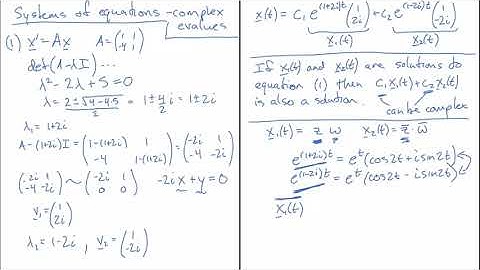 Systems of equations - complex
evalues
(1) x' = Ax A = (1 1
-4 1)
det(A-λI) ...
λ² - 2λ + 5 = 0
λ = (2 ± √(4-4·5))/2 = 1 ± 4/2 i = 1 ± 2i
λ₁ = 1+2i
A - (1+2i)I = (1-(1+2i) 1
-4 1-(1+2i)) = (-2i 1
-4 -2i)
(-2i 1
-4 -2i) ~ (-2i 1
0 0) -2ix + y = 0
v₁ = (1
2i)
λ₂ = 1-2i , v₂ = (1
-2i)
x(t) = C₁ e^((1+2i)t) (1
2i) + C₂ e^((1-2i)t) (1
-2i)
x₁(t) x₂(t)
If x₁(t) and x₂(t) are solutions to
equation (1) then C₁x₁(t) + C₂x₂(t)
is also a solution. can be complex
x₁(t) = z w x₂(t) = z̄ · w̄
e^((1+2i)t) = e^t (cos2t + i sin2t)
e^((1-2i)t) = e^t (cos2t - i sin2t)
x₁(t)